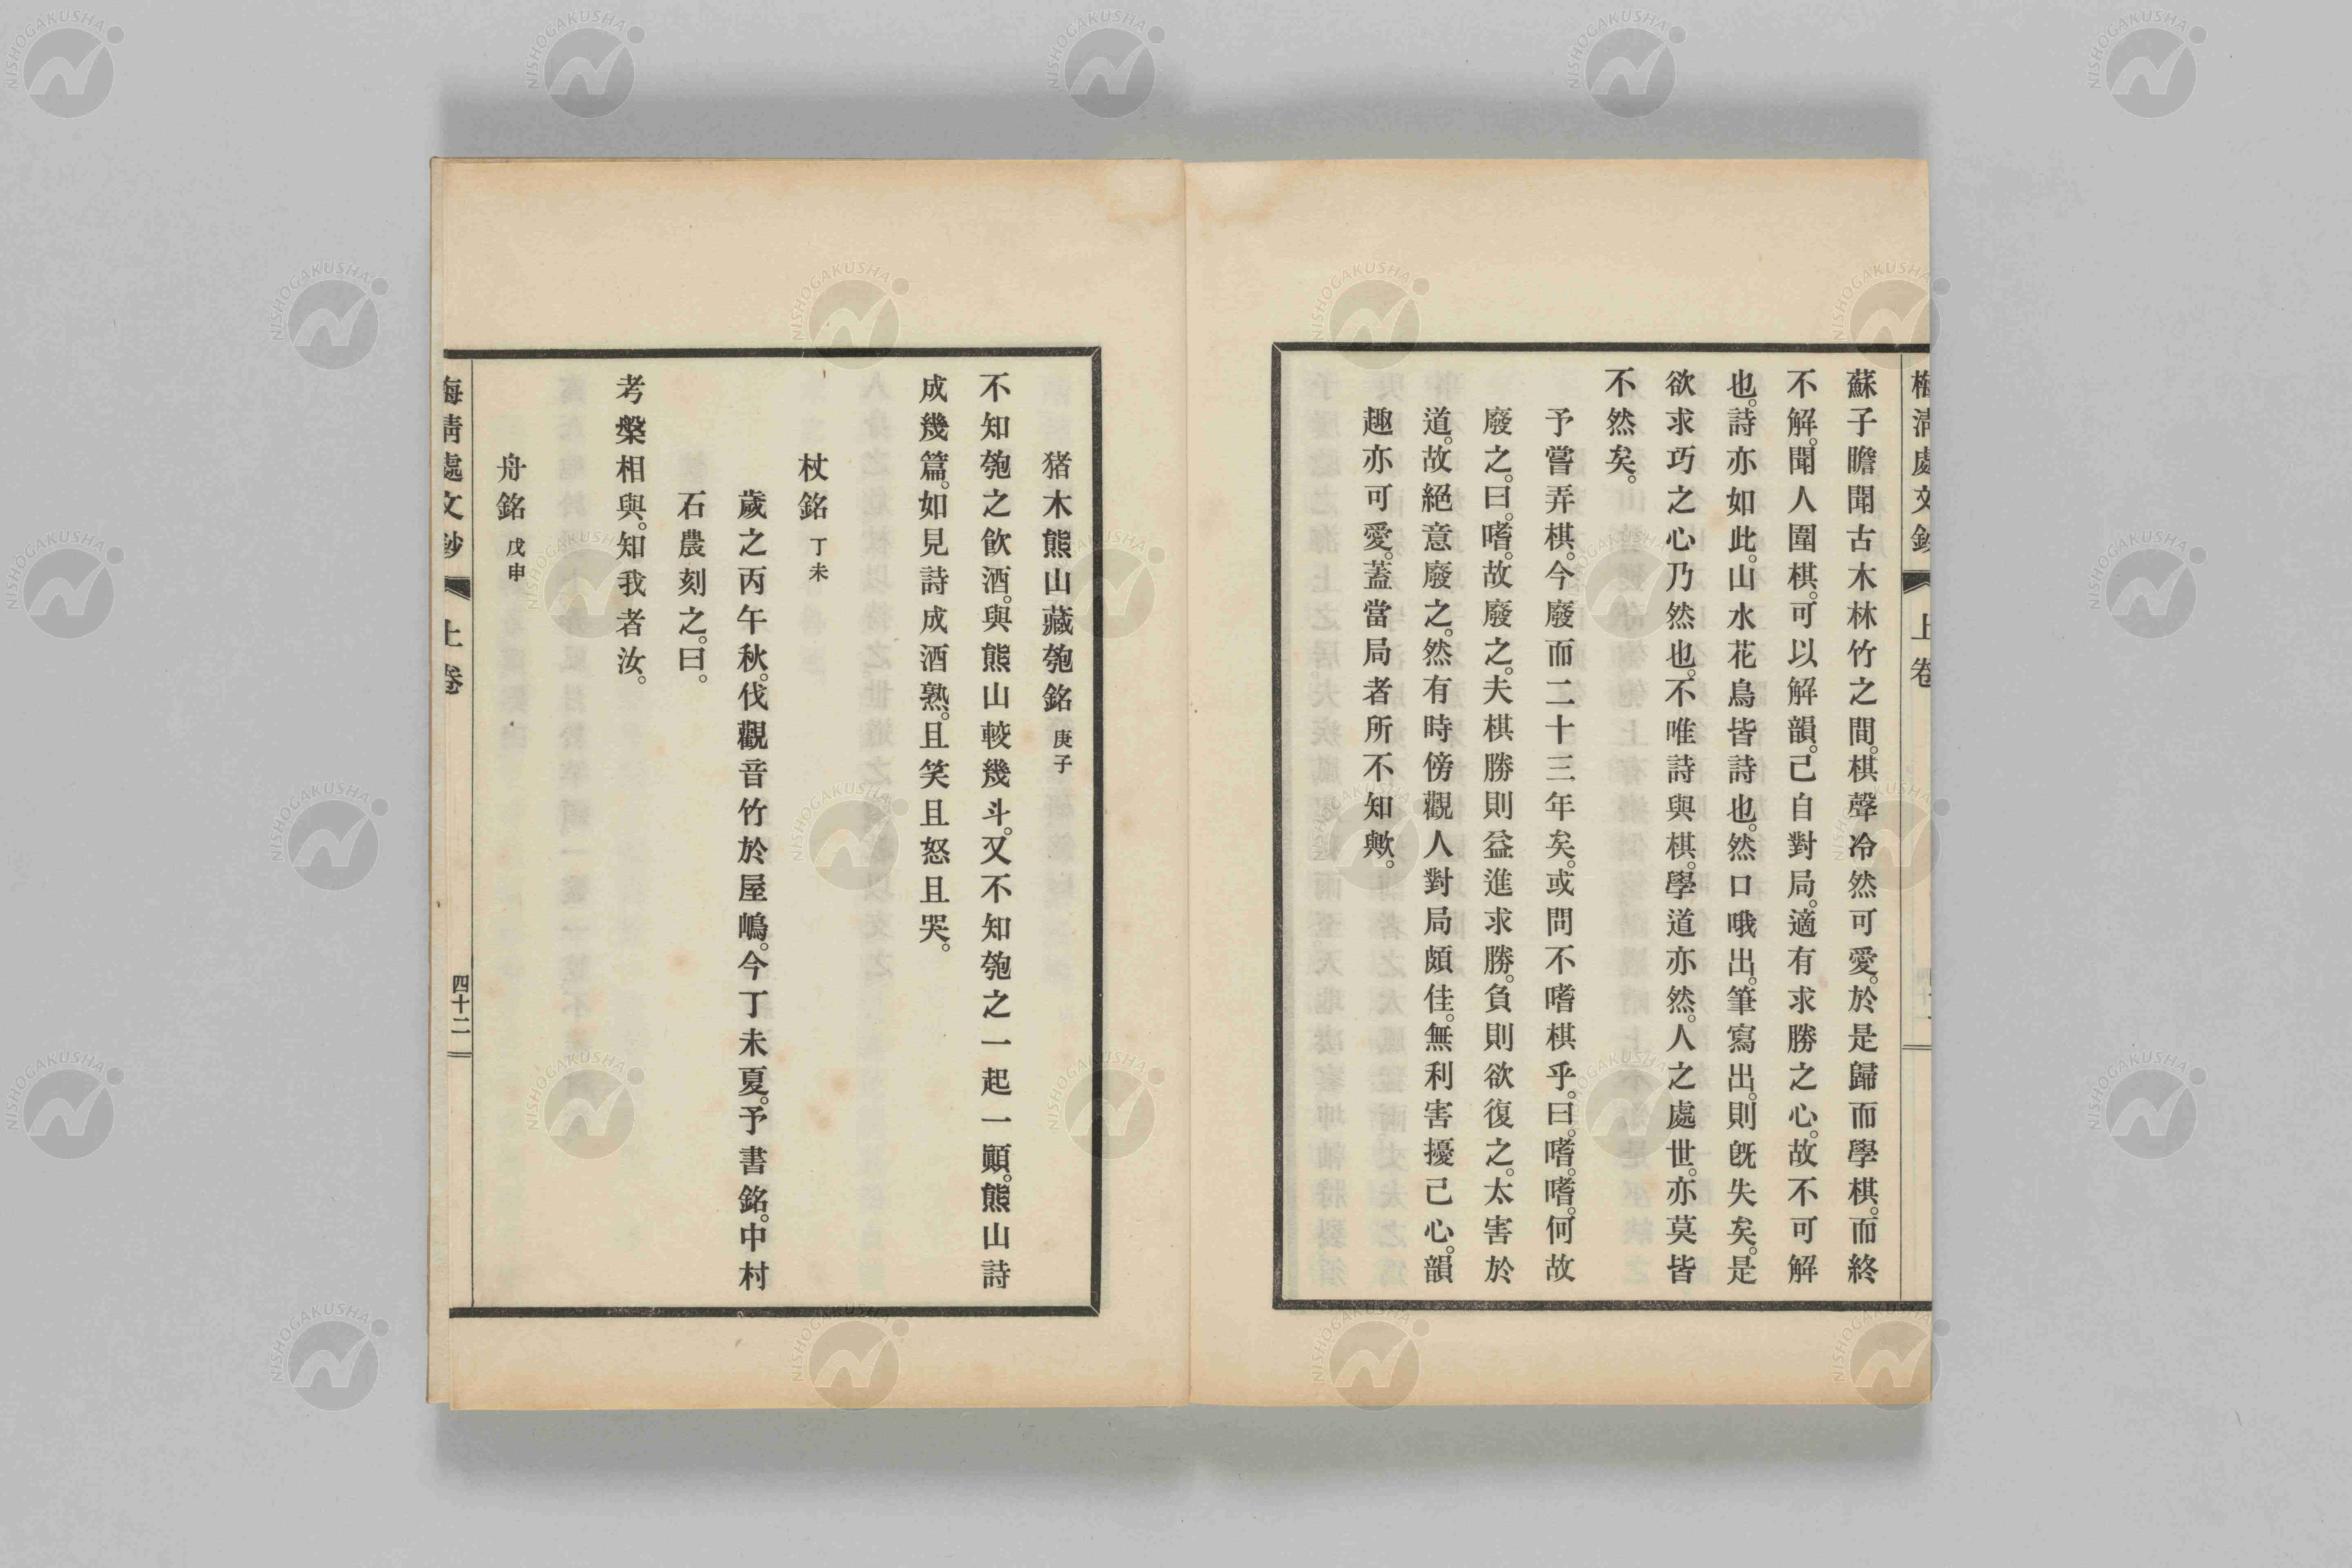 梅清處文鈔 上卷
蘇子瞻聞古木林竹之間。棋聲冷然可愛。於是歸而學棋。而終
不解。聞人圍棋。可以解韻。己自對局。適有求勝之心。故不可解
也。詩亦如此。山水花鳥皆詩也。然口哦出。筆寫出。則既失矣。是
欲求巧之心乃然也。不唯詩與棋。學道亦然。人之處世。亦莫皆
不然矣。
予嘗弄棋。今廢而二十三年矣。或問不嗜棋乎。曰。嗜。嗜。何故
廢之。曰。嗜。故廢之。夫棋勝則益進求勝。負則欲復之。太害於
道。故絕意廢之。然有時傍觀人對局頗佳。無利害擾己心。韻
趣亦可愛。蓋當局者所不知歟。
猪木熊山藏匏銘 庚子
不知匏之飮酒。與熊山較幾斗。又不知匏之一起一顚。熊山詩
成幾篇。如見詩成酒熟。且笑且怒且哭。
杖銘 丁未
歲之丙午秋。伐觀音竹於屋嶋。今丁未夏。予書銘。中村
石農刻之。曰。
考槃相與。知我者汝。
舟銘 戊申
梅清處文鈔 上卷 四十二
NISHOGAKUSHA